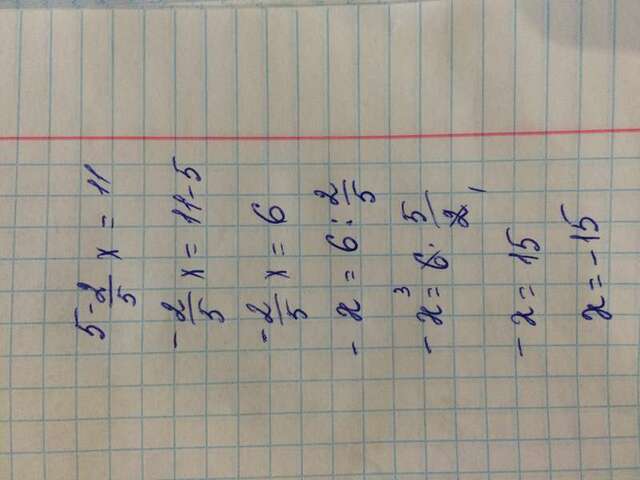 5 - 2/5 x = 11
- 2/5 x = 11 - 5
- 2/5 x = 6
- x = 6 : 2/5
- x = 6 3 · 5/2 1
- x = 15
x = -15